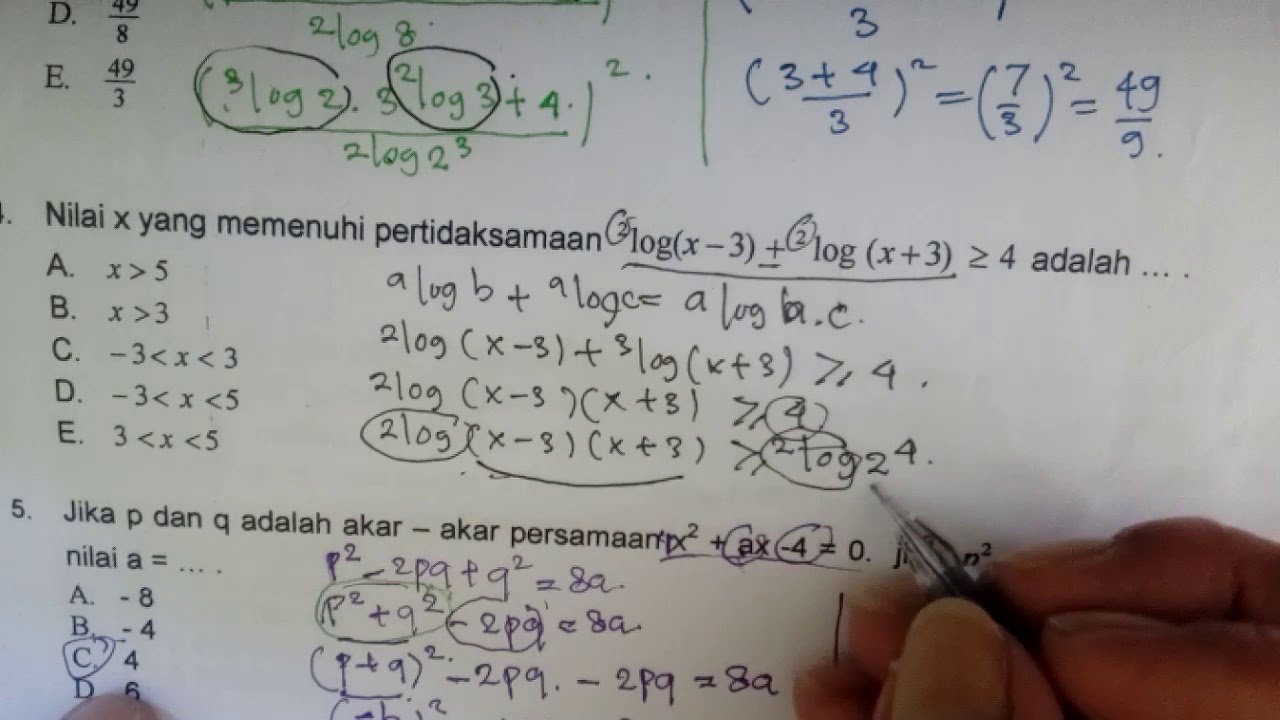 D. 49/8
2log 8
3
E. 49/3
(³log 2). 3 ²log 3 + 4.)².
2log 2³
(3+4/3)² = (7/3)² = 49/9.
Nilai x yang memenuhi pertidaksamaan ²log(x−3) + ²log (x+3) ≥ 4 adalah ... .
A. x > 5
B. x > 3
C. −3 < x < 3
D. −3 < x < 5
E. 3 < x < 5
a log b + a log c = a log b.c.
2log (x−3) + 3log (x+3) ≥ 4.
2log (x−3)(x+3) ≥ 4
2log (x−3)(x+3) ≥ ²log 2⁴.
5. Jika p dan q adalah akar – akar persamaan x² + ax -4 = 0.
nilai a = ... .
A. - 8
B. - 4
C. 4
D. 6
p² − 2pq + q² = 8a.
p² + q² − 2pq = 8a.
(p+q)² − 2pq. − 2pq = 8a